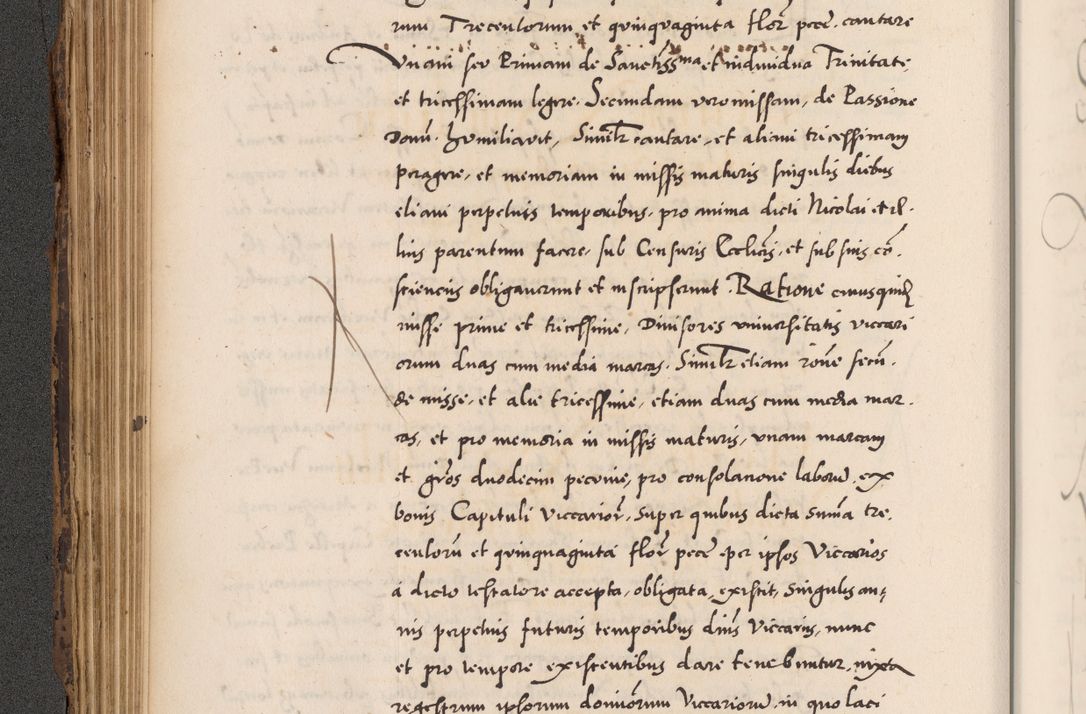 rum Trecentorum et quinquaginta flor pecc. cantare
Vnam seu Primam de Sanctissma et individua Trinitate,
et tricessimam legere. Secundam vero missam, de Passione
Domi. Humiliavit, Similr cantare, et aliam tricessimam
peragere, et memoriam in missis maturis singulis diebus
etiam perpetuis temporibus, pro anima dicti Nicolai et il-
lius parentum facere, sub Censuris Ecclicis, et sub suis co.
scienciis obligaverunt et inscripserunt. Ratione cuiusquidz
misse prime et tricessime, Divisores universitatis viccari
orum duas cum media marcas. Similr etiam rone secun.
de misse, et alie tricessime, etiam duas cum media mar.
cas, et pro memoria in missis maturis, unam marcam
et gros duodecim pecunie, pro consolacione laboru, ex
bonis Capituli Viccarior, super quibus dicta summa tre.
centoru et quinquaginta flor pecc per ipsos Viccarios
a dicto testatore accepta, obligata, existit, singulis an,
nis perpetuis futuris temporibus dnis Viccariis, nunc
et pro tempore existentibus dare tenebuntur, iuxta
registrum ipsorum dominorum Viccarioru, in quo laci